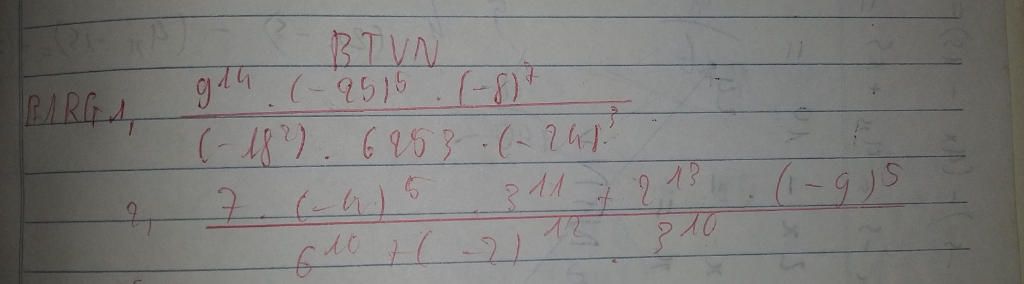 BTVN
B1RG 1, 9^14 . (-25)^5 . (-8)^7
(-18^2) . 6253 . (-24)^3
2, 7 . (-4)^5 . 3^11 + 2^13 . (-9)^5
6^10 + (-2)^12 . 3^10